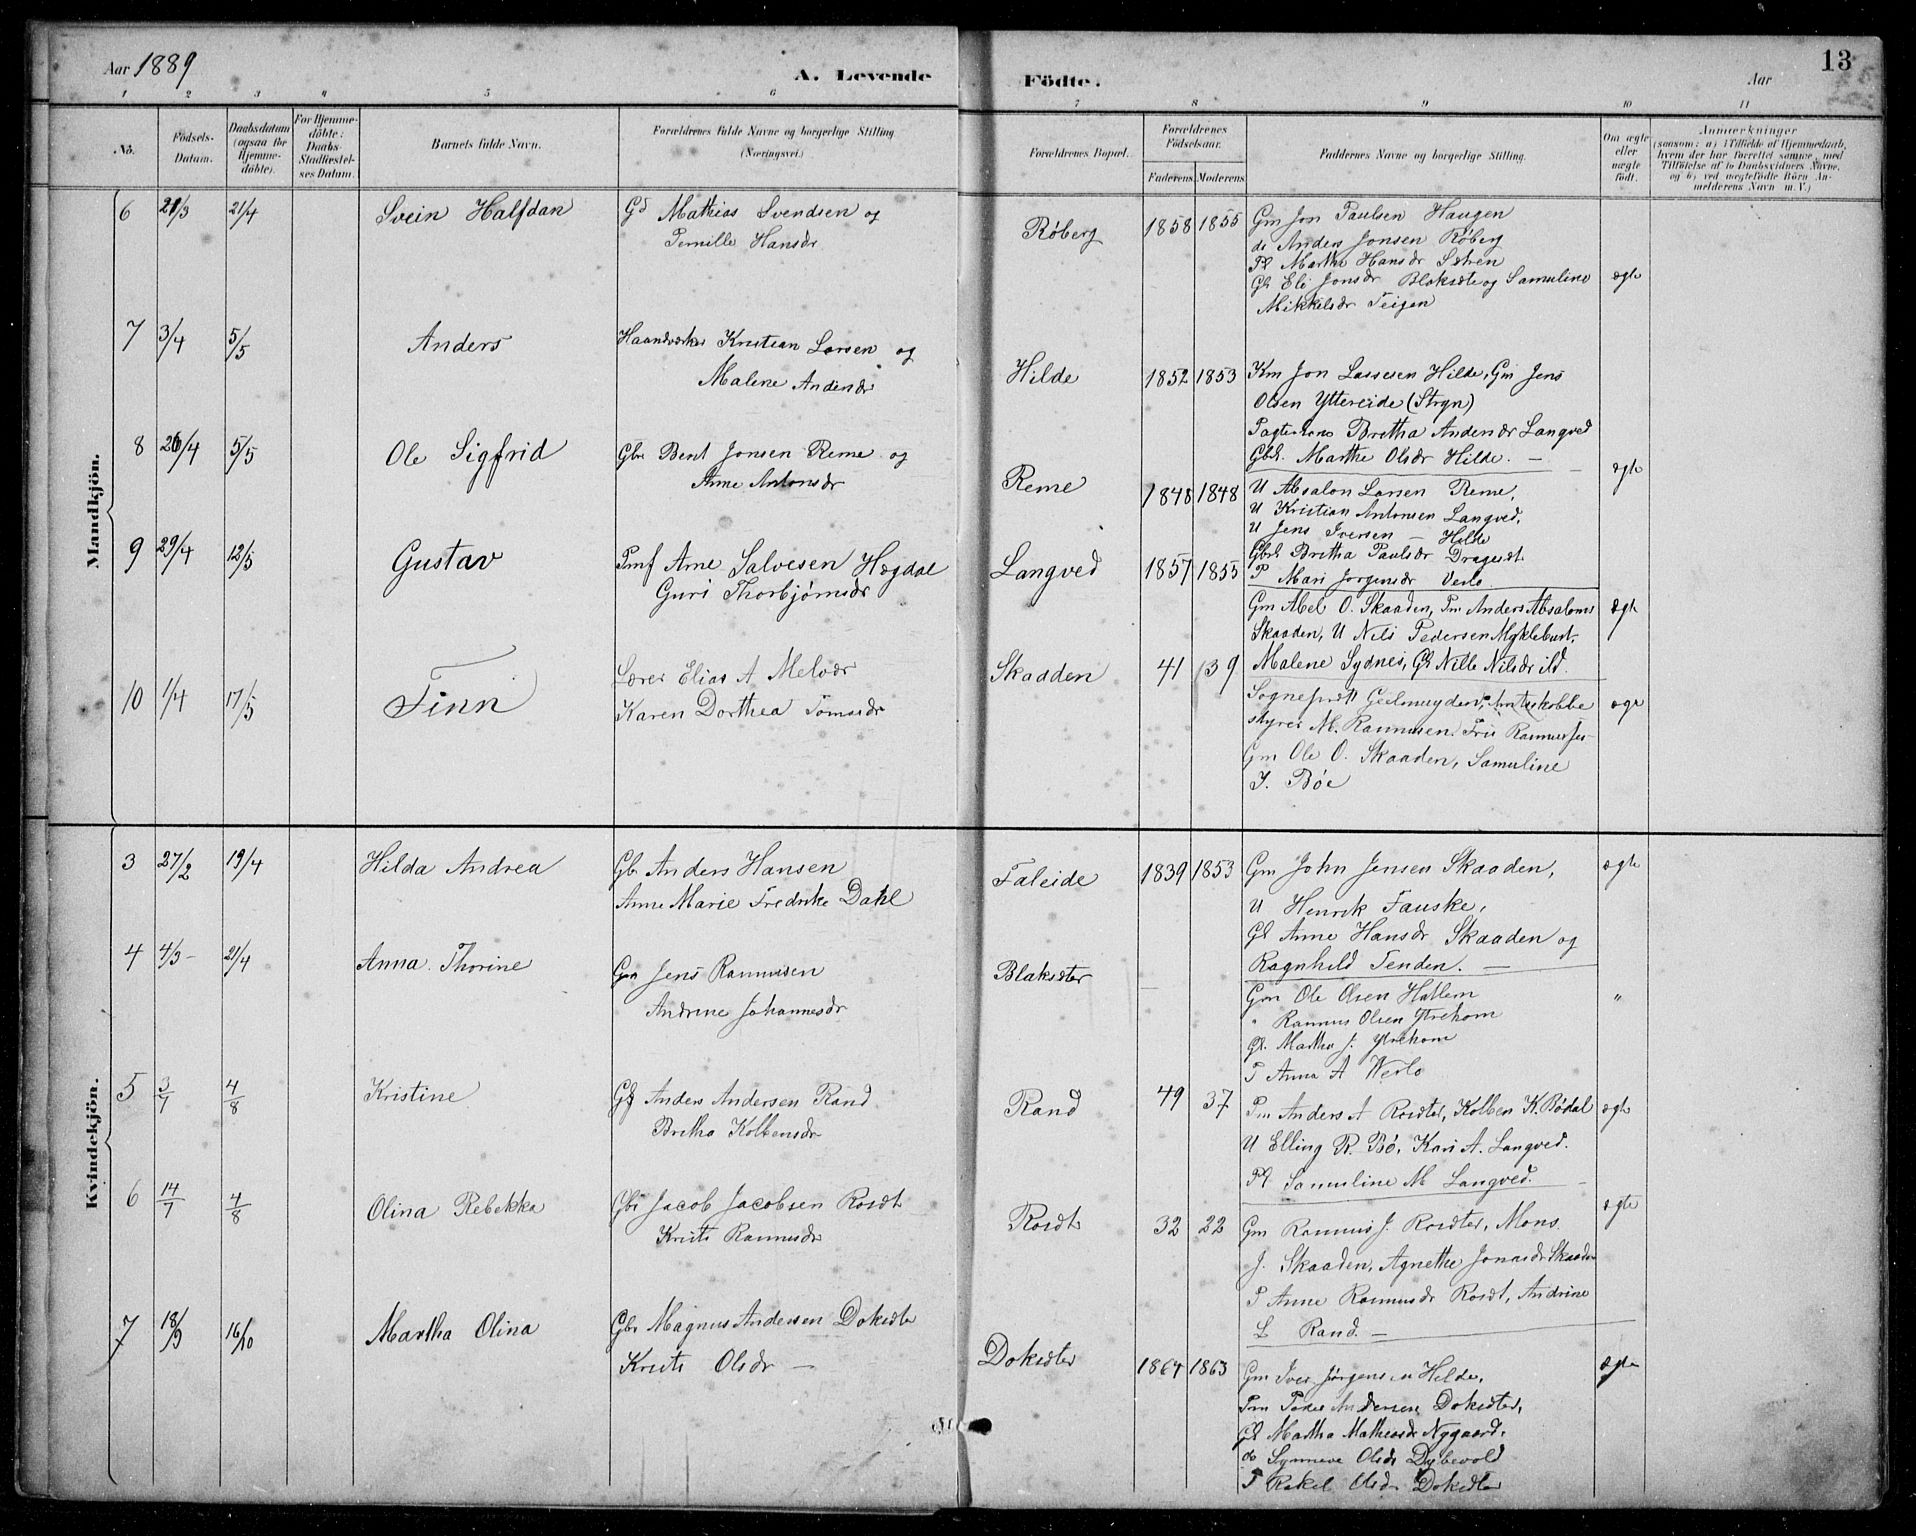 Aar 1889
A. Levende
Födte.
Aar
13
1 2 3 4 5 6 7 8 9 10 11
No.
Födsels-Datum.
Daabsdatum (ogsaa for Hjemme-döbte).
For Hjemme-döbte: Daabs-Stadfæstel-ses Datum.
Barnets fulde Navn.
Forældrenes fulde Navne og borgerlige Stilling
(Næringsvei.)
Forældrenes Bopæl.
Forældrenes Födselsaar.
Faderens Moderens
Faddernes Navne og borgerlige Stilling.
Om ægte eller uægte födt.
Anmærkninger
(saasom: a) i Tilfælde af Hjemmedaab,
hvem der har forrettet samme, med
Tilföielse af to Daabsvidners Navne,
og b) ved uægtefödte Börn An-
melderens Navn m. V.)
Mandkjön.
6 21/3 21/4 Svein Halfdan Gd Mathias Svendsen og
Pernille Hansdr
Røberg 1858 1855 Gm Jon Paulsen Haugen
do Anders Jonsen Røberg
Pl Marthe Hansdr Sætren
Gl Eli Jonsdr Blaksæte og Samuline ægte
Mikkelsdr Teigen
7 3/4 5/5 Anders Haandværker Kristian Larsen og
Malene Andersdr
Hilde 1852 1853 Km Jon Lassesen Hilde, Gm Jens
Olsen Yttereide (Stryn)
Bretha Andersdr Langved
Gbl. Marthe Olsdr Hilde. — ægte
8 26/4 5/5 Ole Sigfrid Gbr Bent Jonsen Reme og
Anne Antonsdr
Reme 1848 1848 U Absalon Larsen Reme,
U Kristian Antonsen Langved,
U Jens Iversen — Hilde
Gbrl Bretha Paulsdr Dragesæt
P Mari Jørgensdr Verlo
9 29/4 12/5 Gustav Pmf Arne Salvesen Hegdal
Guri Thorbjørnsdr
Langved 1857 1855
Gm Abel O. Skaaden, Pm Anders Absalons ægte
Skaaden, U Nils Pedersen Myklebust,
Malene Sydnes, Gl Nille Nilsdr ibd.
10 1/4 17/5 Finn Lærer Elias A Melvær
Karen Dorthea Tomasdr
Skaaden 41 39
Sogneprest Geelmuyden, Amtsskolebe ægte
styrer M. Rasmussen, Fru Rasmussen
Gm Ole O. Skaaden, Samuline
J. Bøe
Kvindekjön.
3 27/2 19/4 Hilda Andrea Gb. Anders Hansen
Anne Marie Fredrike Dahl
Faleide 1839 1853 Gm John Jensen Skaaden, ægte
U Henrik Fauske,
Gl Anne Hansdr Skaaden og
Ragnhild Tenden. —
4 4/3 21/4 Anna Thorine Gm Jens Rasmusen
Andrine Johannesdr
Blaksæter
Gm Ole Olsen Hallem "
" Rasmus Olsen Ytrehorn
Gl. Martha J. Ytrehorn
P Anna A Werlo
5 3/7 4/8 Kristine Gf Anders Andersen Rand
Bretha Kolbensdr
Rand 49 37 Pm Anders A Rosæter, Kolben K. Bødal ægte
U Elling R. Bø, Kari A. Langved.
Pl Samuline M Langved.
6 14/7 4/8 Olina Rebekka Gbr Jacob Jacobsen Rosæt
Kristi Rasmusdr
Rosæt 32 22 Gm Rasmus J. Rosæter, Mons ægte
J. Skaaden, Agnethe Jonasdr Skaaden
P Anne Rasmusdr Rosæt, Andrine
L Rand. —
7 18/9 16/10 Martha Olina Gbr Magnus Andersen Doksæter
Kristi Olsdr —
Doksæter 1864 1863 Gm Iver Jørgensen Hilde, ægte
Pm Peder Andersen Doksæter,
Gl Martha Mathiasdr Nygaard,
do Synneve Olsdr Dybevold
P Rakel Olsdr Doksæter